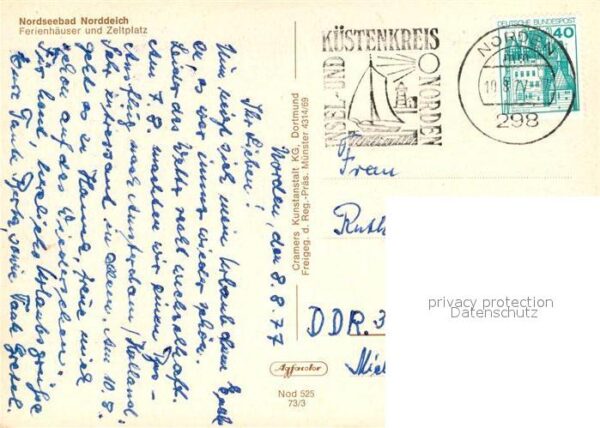 Nordseebad Norddeich
Ferienhäuser und Zeltplatz
Norden, den 8. 8. 77
Ihr Lieben!
Nun neigt sich mein Urlaub dem Ende
zu, es war immer wieder schön.
Leider das Wetter nicht
Am 7. 8. machten wir einen Tages-
Ausflug nach Amsterdam / Holland.
Sehr interessant in allem. Am 10. 8.
geht es n. Hause, freue mich
schon auf das Wiedersehen.
Für heut herzliche Urlaubsgrüße
Eure Tante Herta, sowie Tante Gretel.
Cramers Kunstanstalt KG, Dortmund
Freigeg. d. Reg.-Präs. Münster 4314/69
Agfacolor
Nod 525
73/3
INSEL- UND
KÜSTENKREIS
NORDEN
DEUTSCHE BUNDESPOST
40
NORDEN
298
Frau
Ruth
DDR. 3
privacy protection
Datenschutz